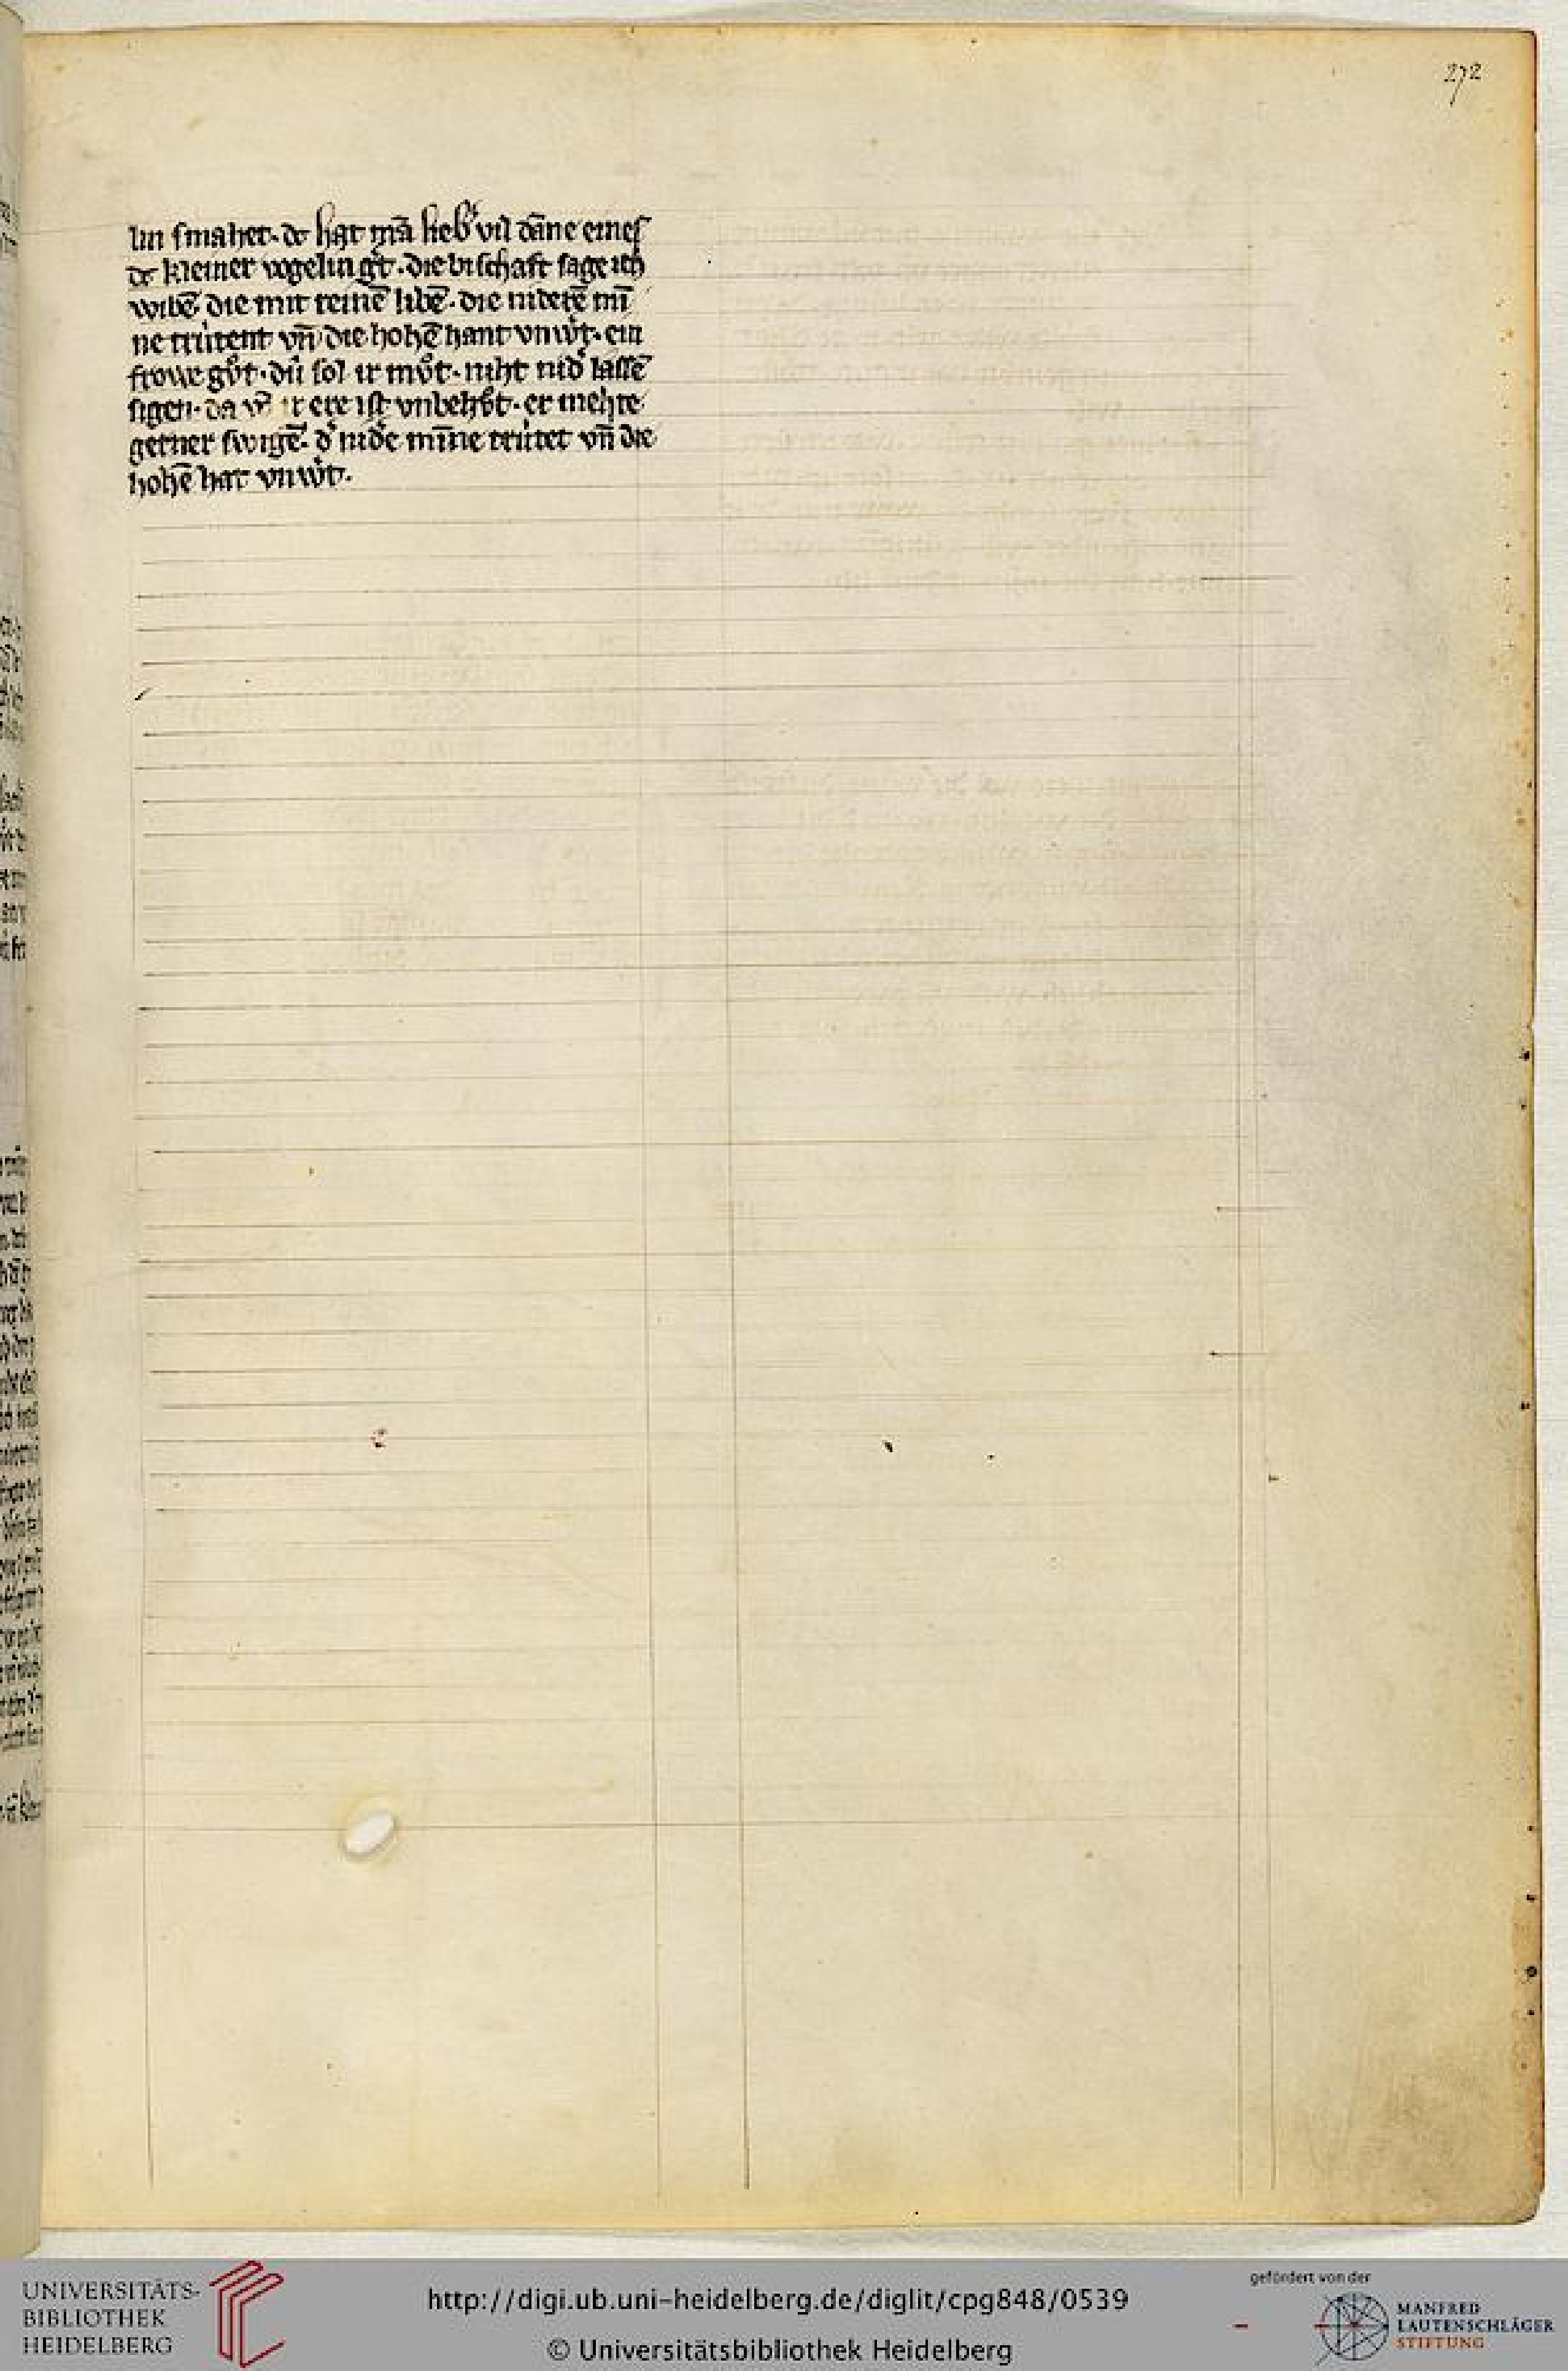 272
lin smahet. dc hat mā lieb͛ vil dāne eines
dc kleiner vogelin gͤt. die bischaft sage ich
wibē die mit reinē libē. die niderē mī
ne trútent vn̄ die hohē hant vnw͛t. ein
frowe gv̊t. dú sol ir mv̊t. niht nid͛ lassē
sigen. da vō ir ere ist vnbehv̊t. er mehte
gerner swigē. d͛ nid͛e mīne trútet vn̄ die
hohē hat vnw͛t.
UNIVERSITÄTS-
BIBLIOTHEK
HEIDELBERG
http://digi.ub.uni-heidelberg.de/diglit/cpg848/0539
© Universitätsbibliothek Heidelberg
gefördert von der
MANFRED
LAUTENSCHLÄGER
STIFTUNG